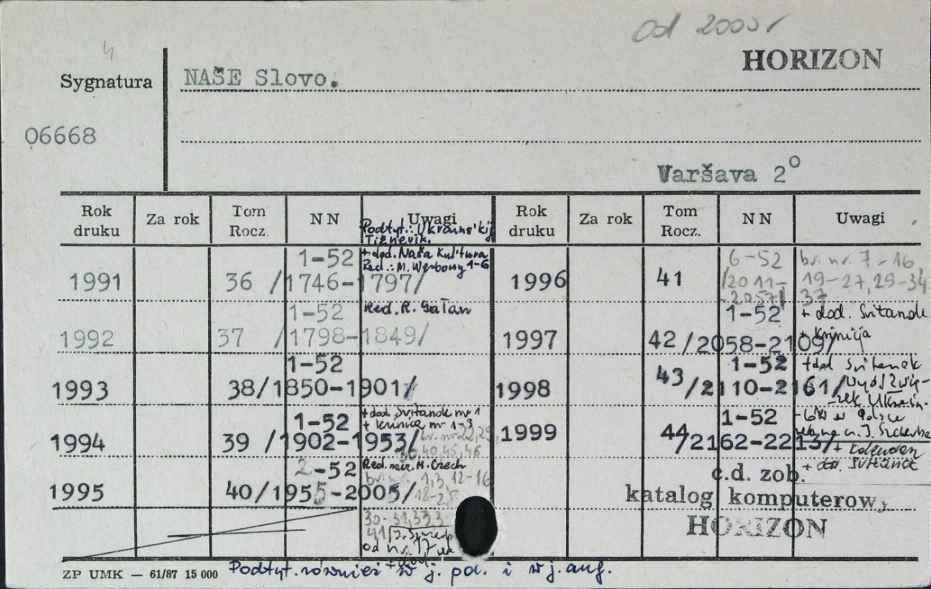 od 2000r
4
HORIZON
Sygnatura NAŠE Slovo.
06668
Varšava 2°
Rok druku Za rok Tom Rocz. NN Uwagi Rok druku Za rok Tom Rocz. NN Uwagi
Podtyt.: Ukraïns'kij
Tižnevik.
1991 36 1-52 /1746-1797/ + dod. Naša Kul'tura
Red.: M. Werbowy 1-6
1996 41 6-52 /2011-2057/ br. nr. 7-16,
19-27, 29-34
37
1992 37 1-52 /1798-1849/ Red. R. Gałan
1997 42 1-52 /2058-2109/ + dod. Svitanok
+ Krynicja
1993 38 1-52 /1850-1901/
1998 43 1-52 /2110-2161/ + dod. Svitanok
1994 39 1-52 /1902-1953/ + dod. Svitanok nr 1
+ Krinicâ nr 1-3
br. nr 22,25,
36,40,45,46
1999 44 1-52 /2162-2213/ w Polsce
+ dod. Svitanok
1995 40 2-52 /1955-2005/ Red. nacz. M. Czech
br. nr. 1,3,12-16
od nr. 17
c.d. zob.
katalog komputerowy
HORIZON
ZP UMK — 61/87 15 000 Podtyt. również w j. pol. i w j. ang.